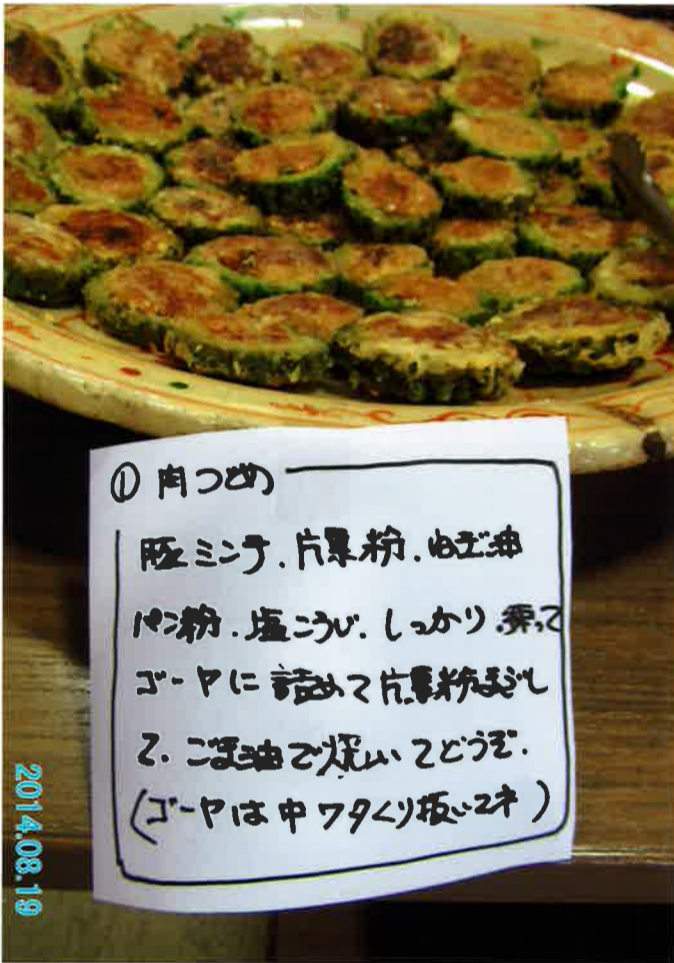 ① 肉づめ
豚ミンチ.片栗粉.ねぎ油
パン粉.塩こうじ.しっかり.練って
ゴーヤに詰めて片栗粉まぶし
て.ごま油で焼いてどうぞ.
(ゴーヤは中ワタくり抜いてネ)
2014.08.19